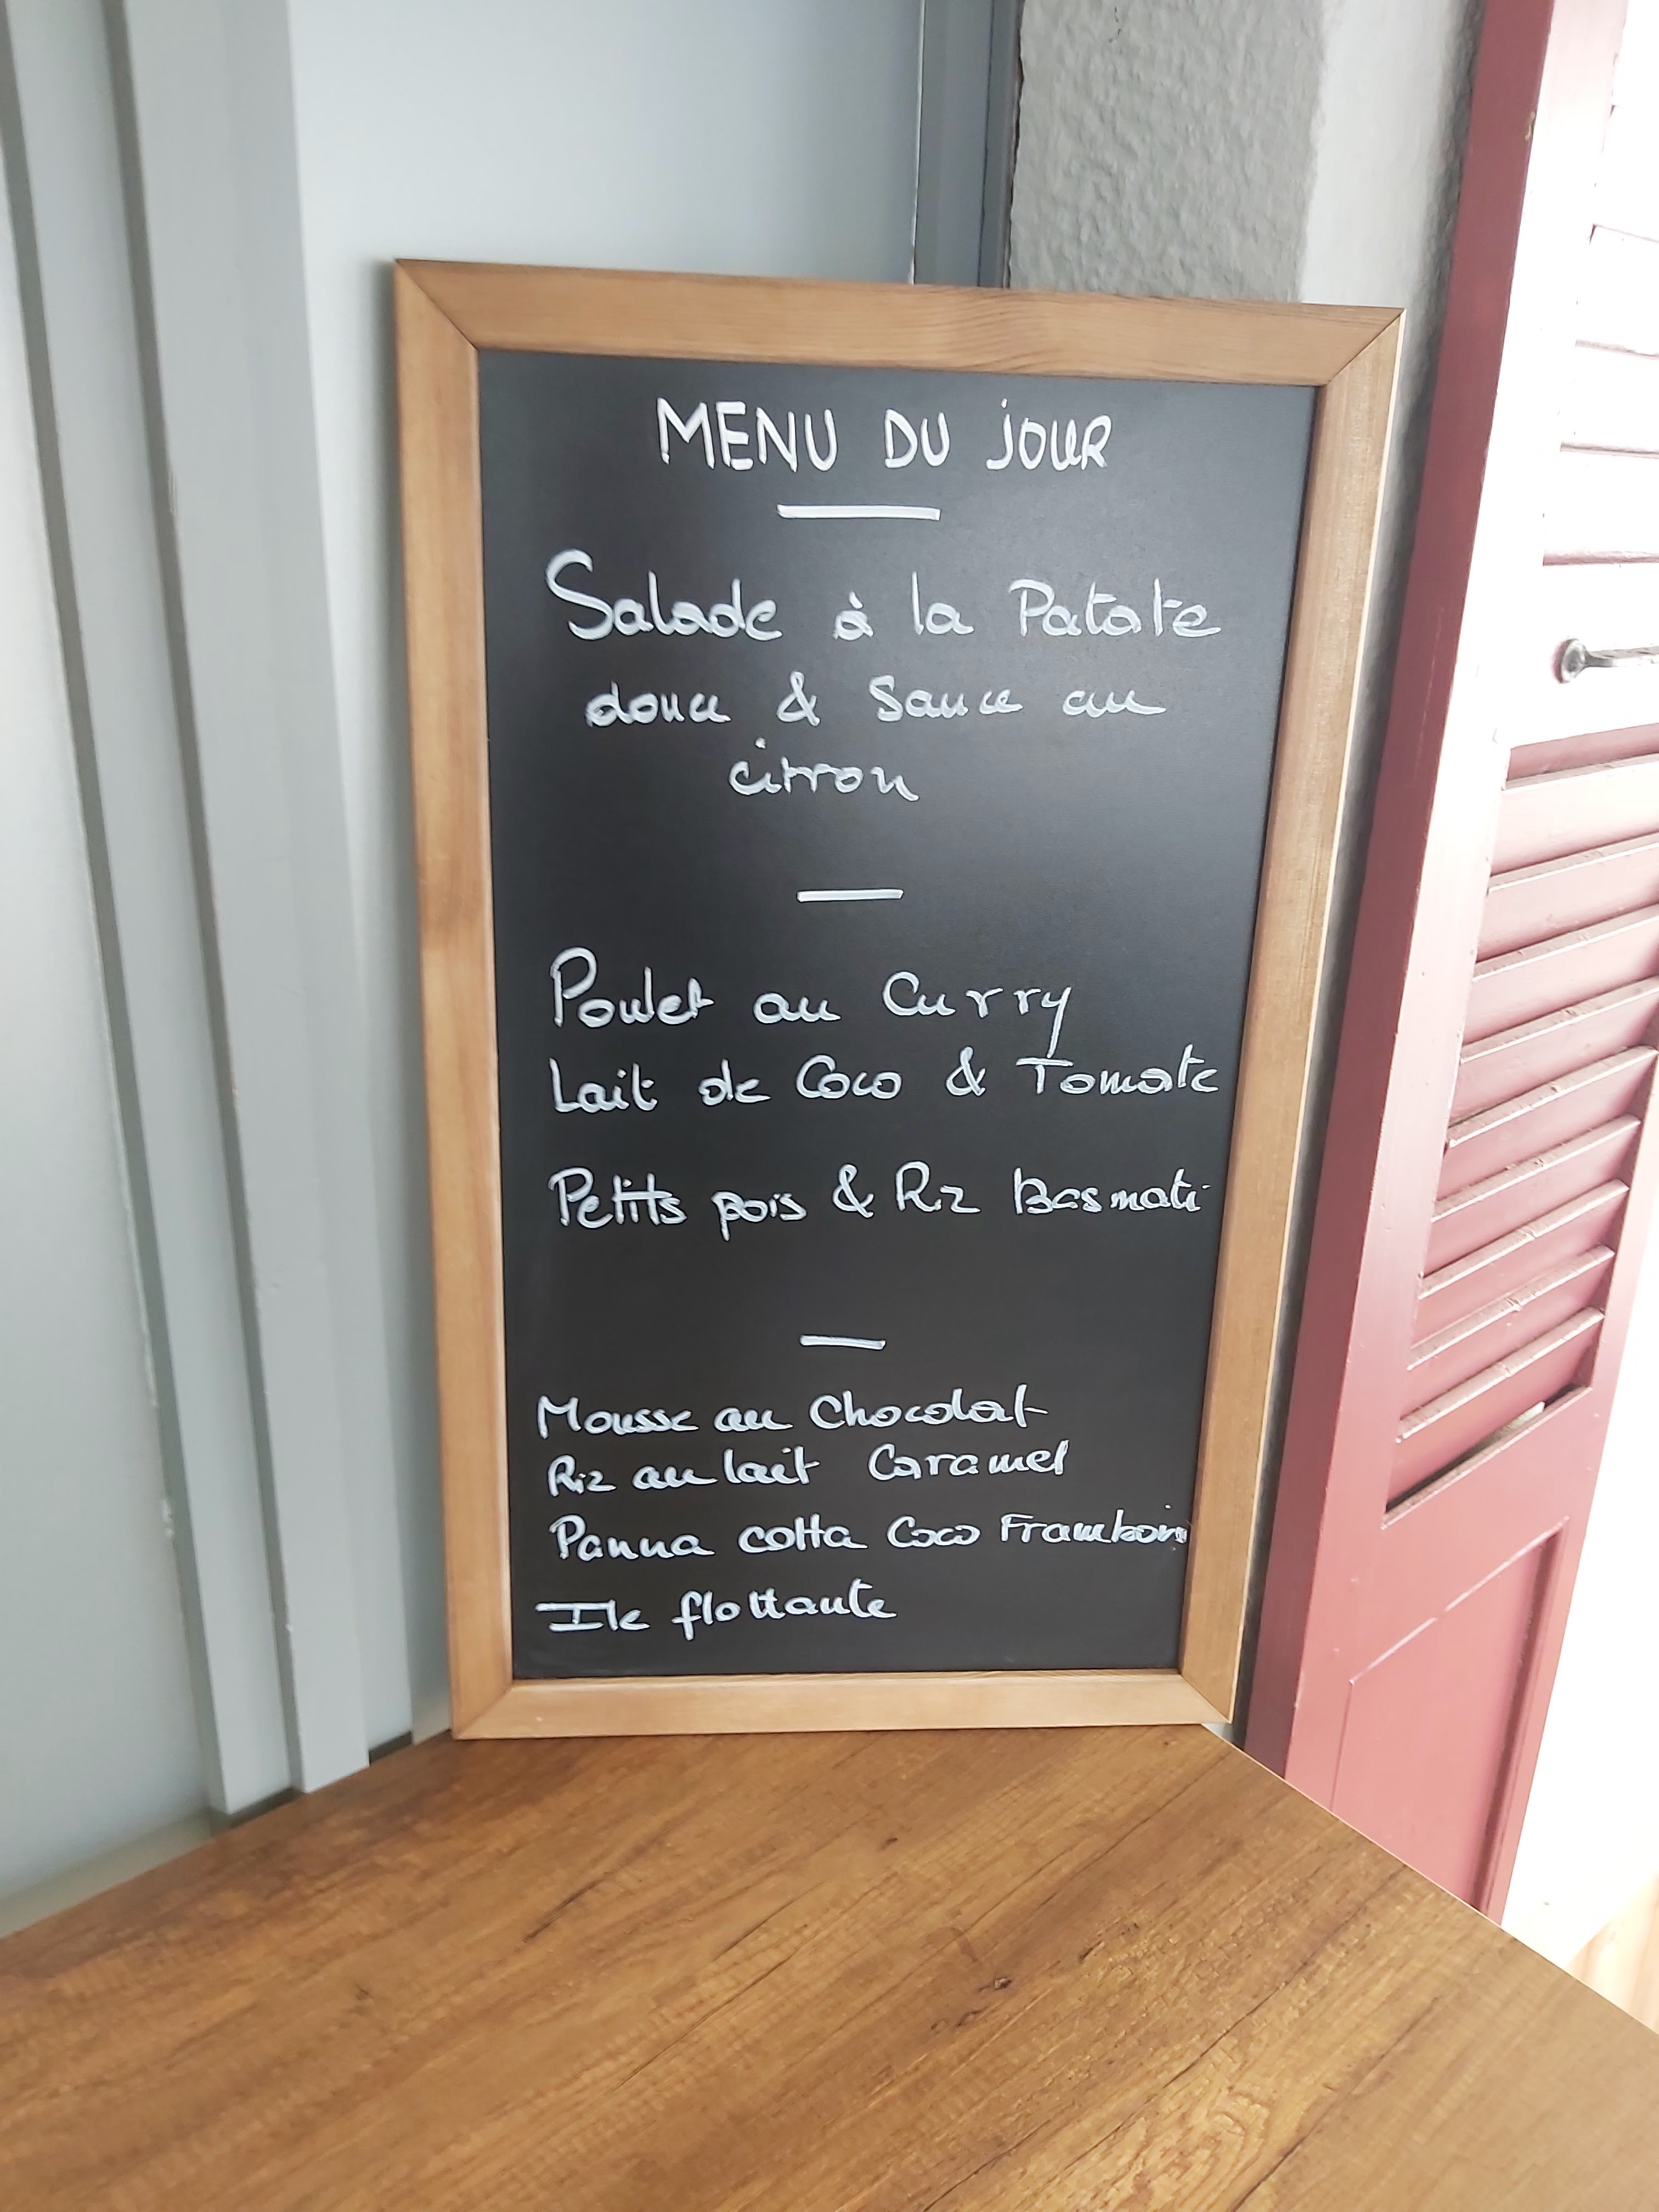 MENU DU JOUR
Salade à la Patate
douce & Sauce au
citron
Poulet au Curry
Lait de Coco & Tomate
Petits pois & Riz Basmati
Mousse au Chocolat
Riz au lait Caramel
Panna cotta Coco Framboise
Ile flottante